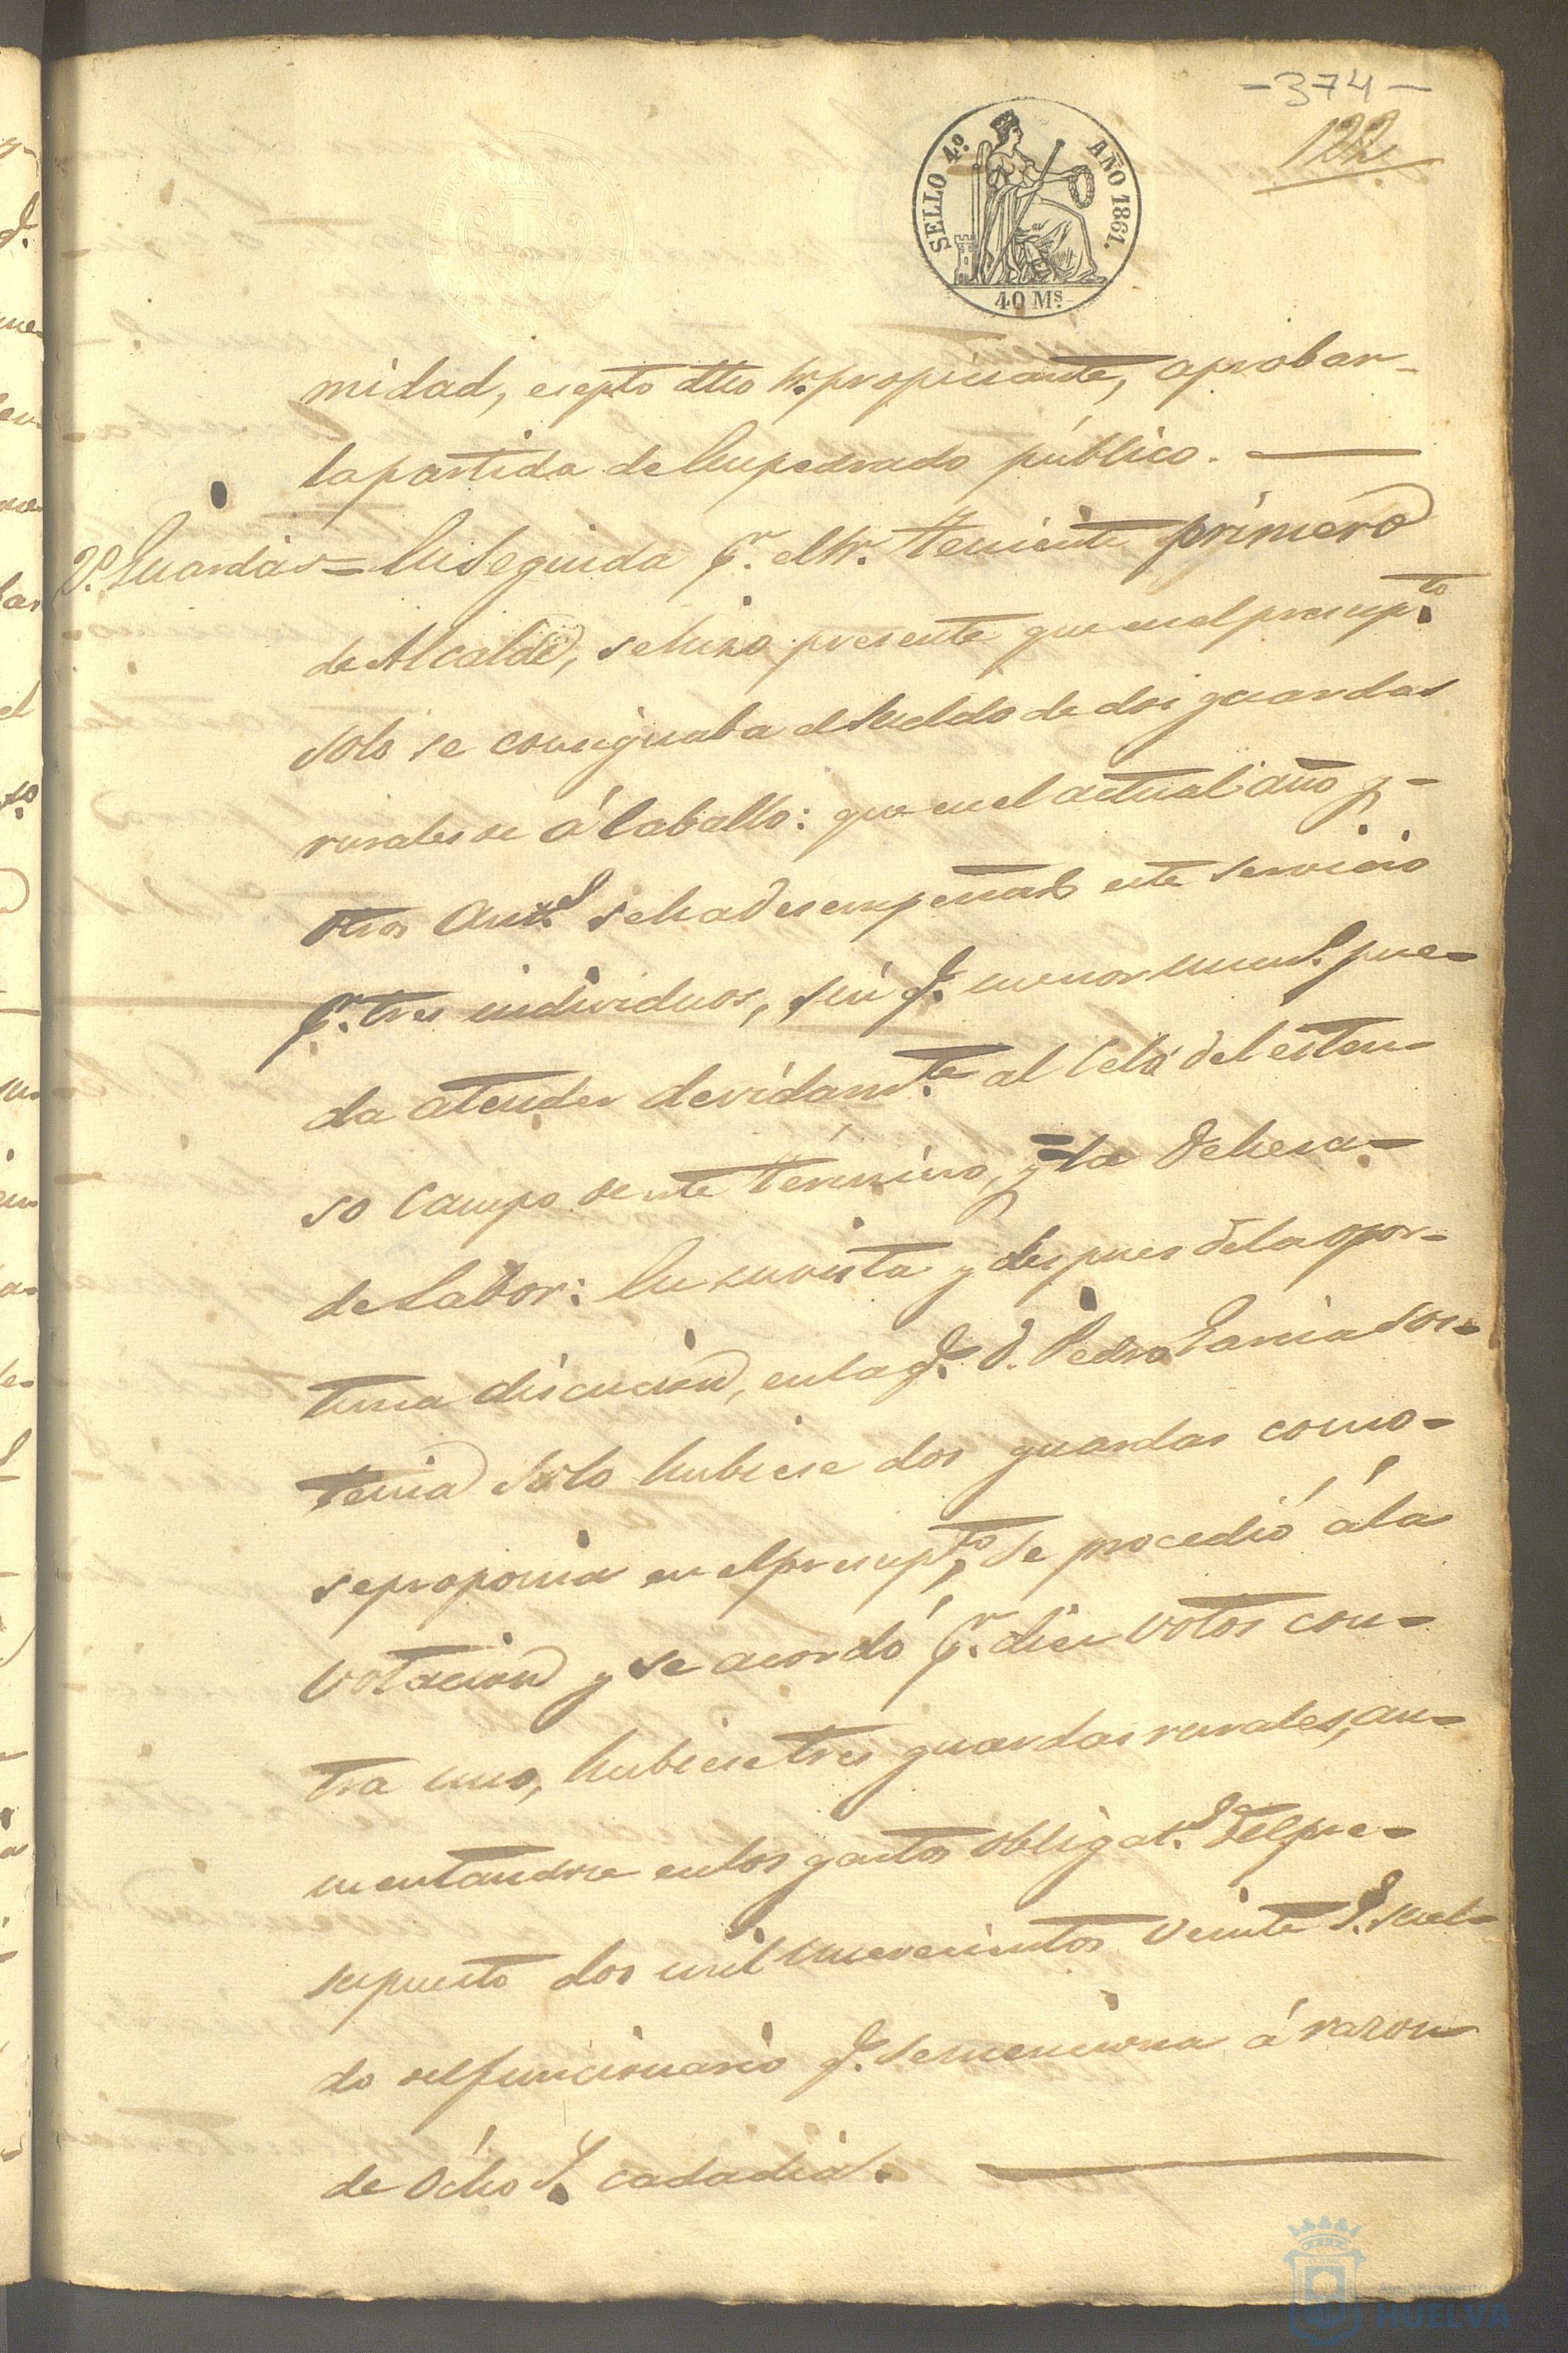 -374-
122
SELLO 4.º AÑO 1861.
40 Ms.
midad, esepto dho Sr. propinante, aprobar
la partida de Empedrado público.
2.º Guardas = En Seguida pr. el Sr. Teniente primero
de Alcalde, se hizo presente que en el presupto.
solo se consignaba el Sueldo de dos guardas
rurales de á Caballo: que en el actual año y
otros ants. se ha desempeñado este servicio
pr. tres individuos, sin q. menor num. pue-
da atender devidamte. al Celo del esten-
so Campo de este término, y la Dehesa
de Labor: En su vista y despues de la opor-
tuna discucion, en la q. D. Pedro Garcia sos-
tenia solo hubiese dos guardas como
se proponia en el presupto, se procedió á la
votacion y se acordó pr. diez votos con-
tra uno, hubiese tres guardas rurales, au-
mentandose en los gastos obligats. del pre-
supuesto dos mil nuevecientos veinte rs. suel-
do del funcionario q. se menciona á razon
de Ocho rs. cada dia.
Ayuntamiento
HUELVA